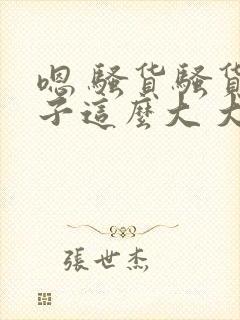 嗯 骚货骚货
子這麼大 大
張世杰